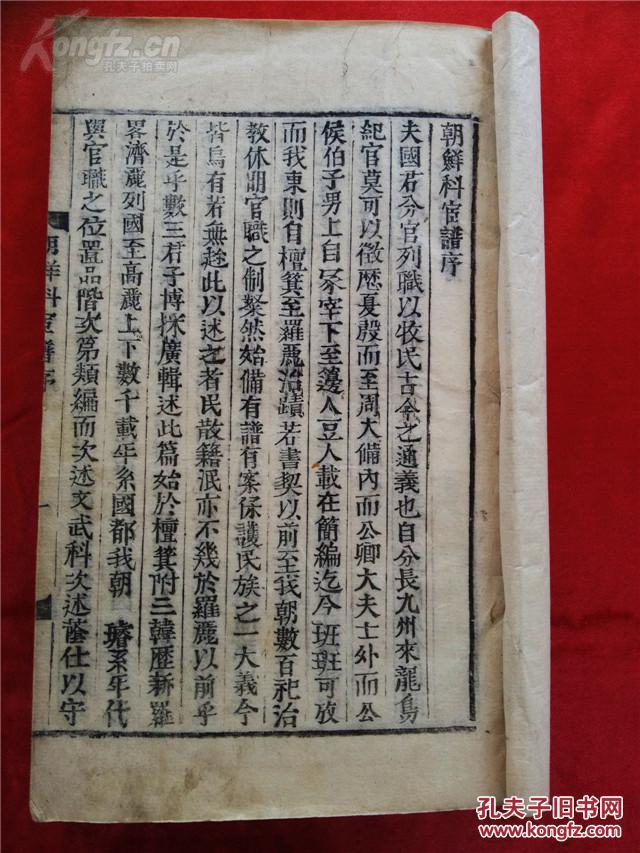 朝鮮科宦譜序
夫國君分官列職以牧民古今之通義也自分長九州來龍鳥
紀官莫可以徵歷夏殷而至周大備內而公卿大夫士外而公
侯伯子男上自冢宰下至籩人豆人載在簡編迄今班班可攷
而我東則自檀箕至羅麗治蹟若書契以前至我朝數百祀治
敎休明官職之制粲然始備有譜有案保護民族之一大義今
皆烏有若無趁此以述之者民散籍泯亦不幾於羅麗以前乎
於是乎數三君子博採廣輯述此篇始於檀箕附三韓歷新羅
畧濟麗列國至高麗上下數千載年系國都我朝 璿系年代
與官職之位置品階次第類編而次述文武科次述蔭仕以守
朝鮮科宦譜序 一
Kongfz.cn
孔夫子拍卖网
孔夫子旧书网
www.kongfz.com